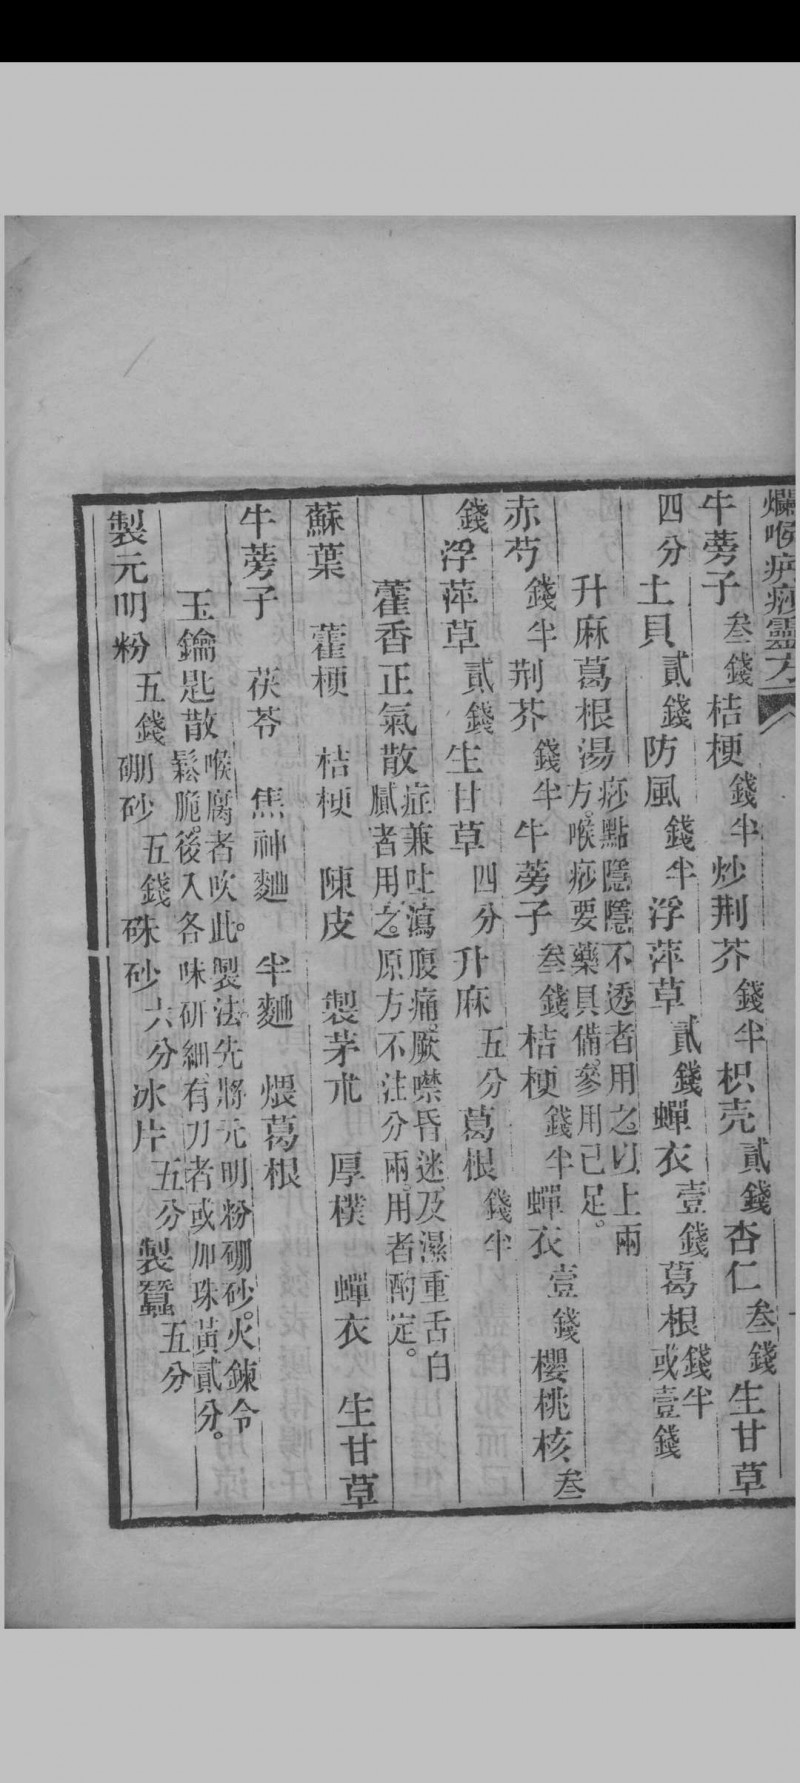 爛喉㾦痧靈方
牛蒡子叁錢桔梗錢半炒荆芥錢半枳壳貳錢杏仁叁錢生甘草
四分土貝貳錢防風錢半浮萍草貳錢蟬衣壹錢葛根錢半或壹錢
升麻葛根湯痧點隱隱不透者用之以上兩方喉痧要藥具備參用已足。
赤芍錢半荆芥錢半牛蒡子叁錢桔梗錢半蟬衣壹錢櫻桃核叁
錢浮萍草貳錢生甘草四分升麻五分葛根錢半
藿香正氣散症兼吐瀉腹痛厥噤昏迷及濕重舌白膩者用之。原方不注分兩用者酌定。
蘇葉 藿梗 桔梗 陳皮 製茅朮 厚樸 蟬衣 生甘草
牛蒡子 茯苓 焦神麯 半麯 煨葛根
玉鑰匙散喉腐者吹此。製法先將元明粉硼砂。火鍊令鬆脆。後入各味研細有力者或加珠黃貳分。
製元明粉五錢硼砂五錢硃砂六分冰片五分製蠶五分